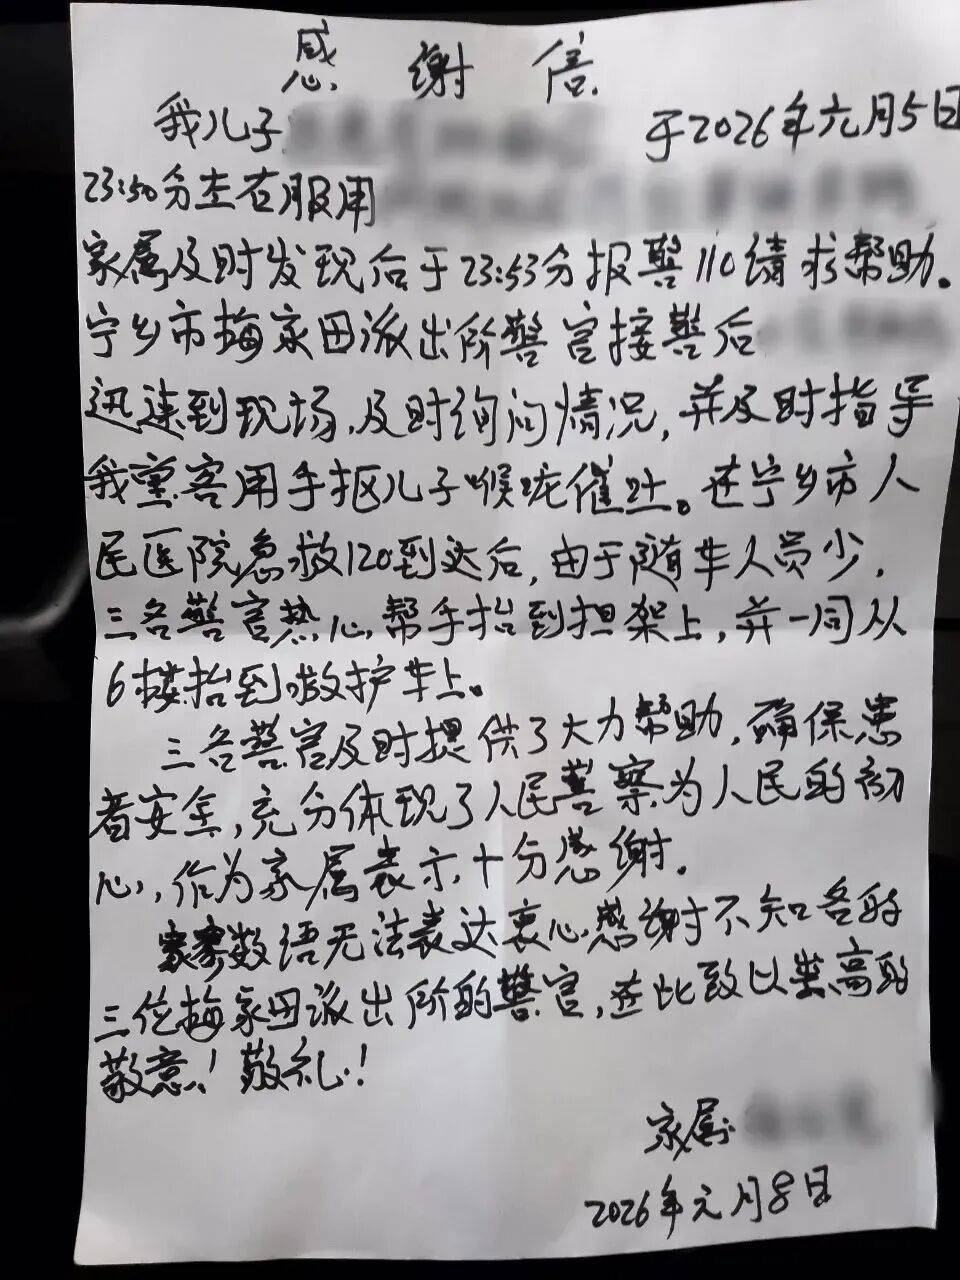 感谢信
我儿子 于2026年元月5日
23:50分左右服用
家属及时发现后于23:53分报警110请求帮助。
宁乡市梅家田派出所警官接警后
迅速到现场,及时询问情况,并及时指导
我重客用手抠儿子喉咙催吐。在宁乡市人
民医院急救120到达后,由于随车人员少,
三名警官热心帮手抬到担架上,并一同从
6楼抬到救护车上。
三名警官及时提供了大力帮助,确保患
者安全,充分体现了人民警察为人民的初
心,作为家属表示十分感谢。
寥寥数语无法表达衷心感谢对不知名的
三位梅家田派出所的警官,在此致以崇高的
敬意!敬礼!
家属:
2026年元月8日